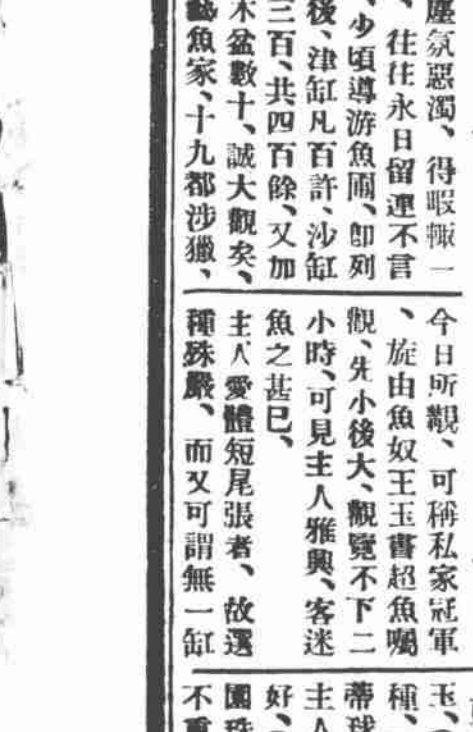 塵氛惡濁、得暇輒一
、往往永日留連不言
、少頃導游魚圃、卽列
後、津缸凡百許、沙缸
三百、共四百餘、又加
木盆數十、誠大觀矣、
藝魚家、十九都涉獵、
今日所觀、可稱私家冠軍
、旋由魚奴王玉書超魚囑
觀、先小後大、觀覽不下二
小時、可見主人雅興、客迷
魚之甚已、
主人愛體短尾張者、故選
種殊嚴、而又可謂無一缸
玉、
種、
蒂球
主人
好、
園珠
不重